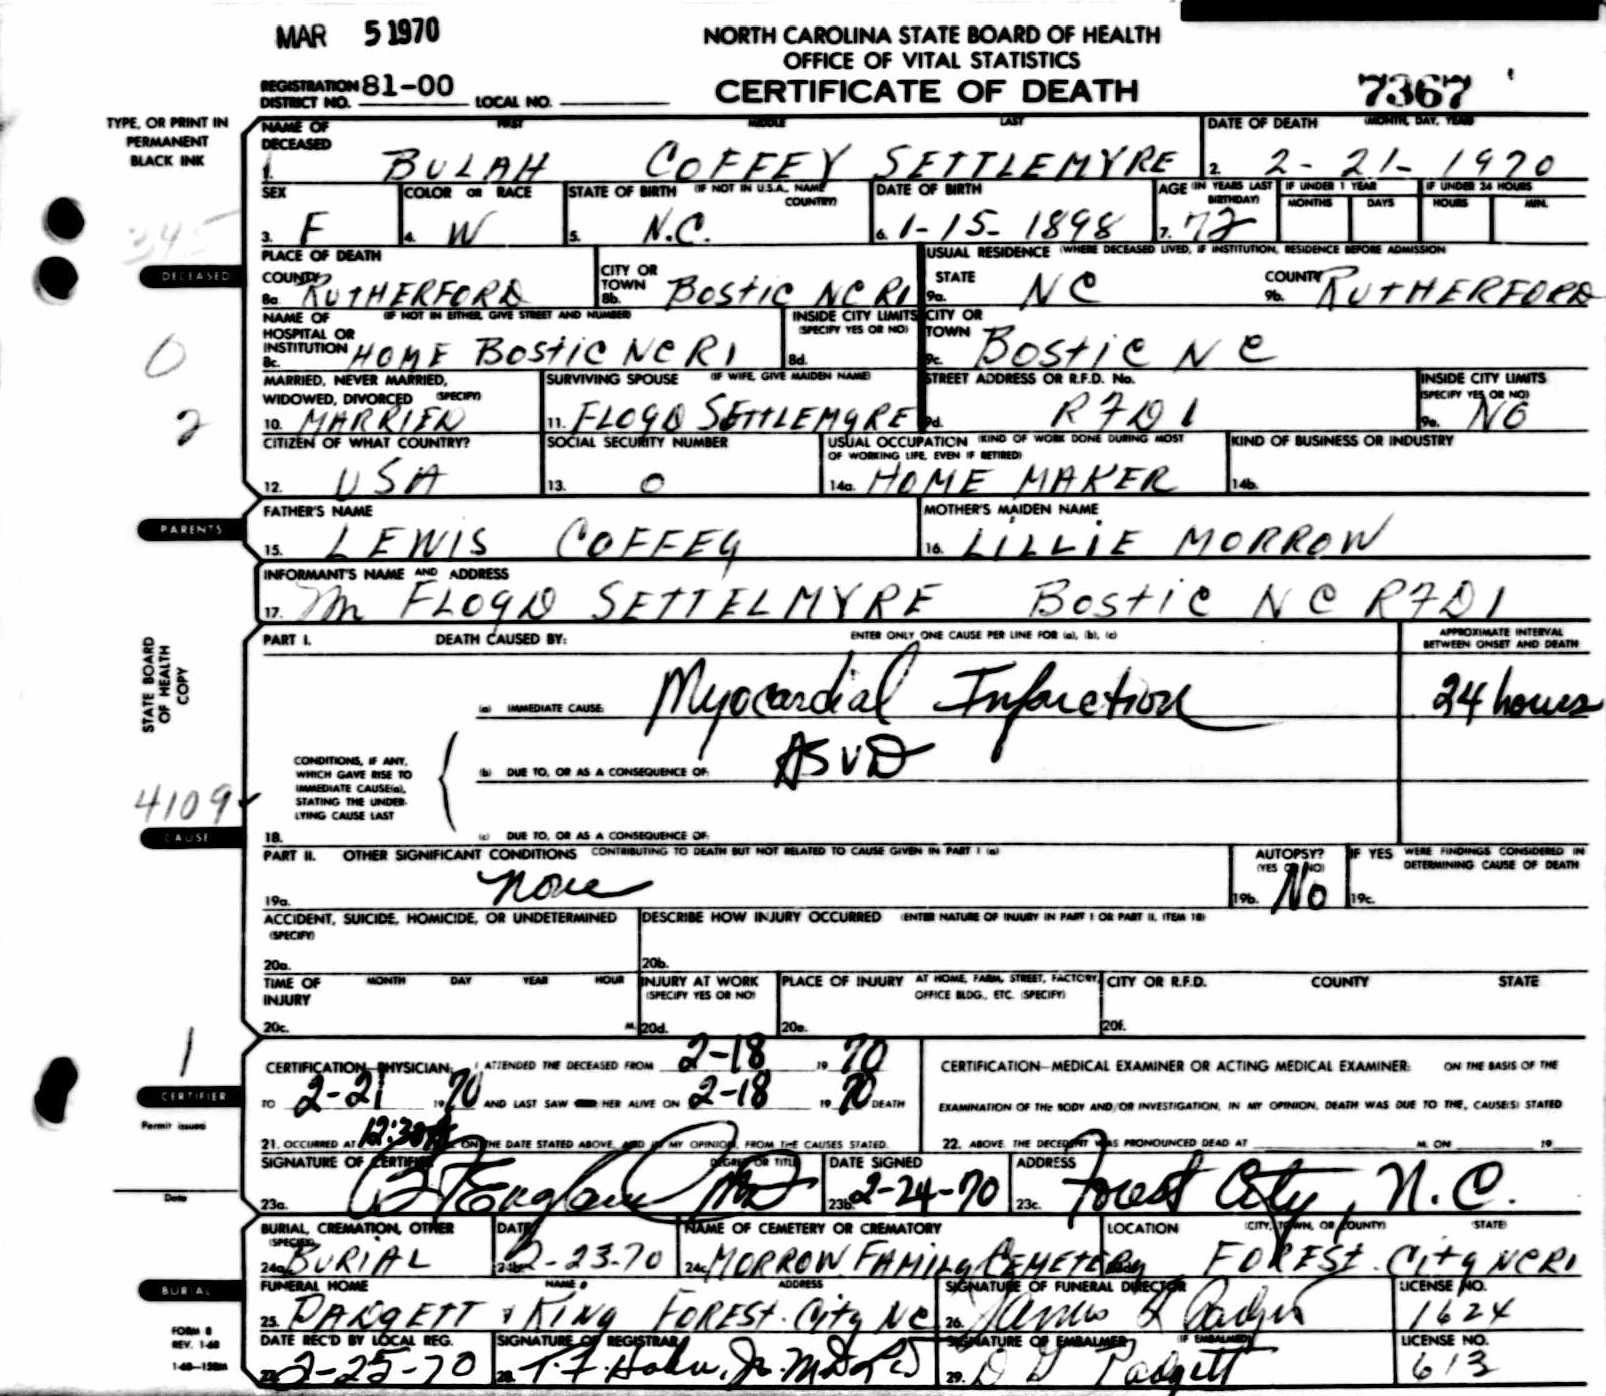 MAR 5 1970
NORTH CAROLINA STATE BOARD OF HEALTH
OFFICE OF VITAL STATISTICS
CERTIFICATE OF DEATH
REGISTRATION DISTRICT NO. 81-00 LOCAL NO.
7367
TYPE, OR PRINT IN PERMANENT BLACK INK
NAME OF DECEASED FIRST MIDDLE LAST
1. BULAH COFFEY SETTLEMYRE
DATE OF DEATH (MONTH, DAY, YEAR)
2. 2-21-1970
SEX 3. F
COLOR OR RACE 4. W
STATE OF BIRTH (IF NOT IN U.S.A., NAME COUNTRY) 5. N.C.
DATE OF BIRTH 6. 1-15-1898
AGE (IN YEARS LAST BIRTHDAY) 7. 72
IF UNDER 1 YEAR MONTHS DAYS
IF UNDER 24 HOURS HOURS MIN.
345
DECEASED
PLACE OF DEATH
COUNTY 8a. RUTHERFORD
CITY OR TOWN 8b. BOSTIC NC R1
USUAL RESIDENCE (WHERE DECEASED LIVED, IF INSTITUTION, RESIDENCE BEFORE ADMISSION
STATE 9a. NC
COUNTY 9b. RUTHERFORD
NAME OF HOSPITAL OR INSTITUTION (IF NOT IN EITHER, GIVE STREET AND NUMBER)
8c. HOME BOSTIC NC R1
INSIDE CITY LIMITS (SPECIFY YES OR NO) 8d.
CITY OR TOWN 9c. BOSTIC NC
0
2
MARRIED, NEVER MARRIED, WIDOWED, DIVORCED (SPECIFY)
10. MARRIED
SURVIVING SPOUSE (IF WIFE, GIVE MAIDEN NAME)
11. FLOYD SETTLEMYRE
STREET ADDRESS OR R.F.D. No. 9d. RFD1
INSIDE CITY LIMITS (SPECIFY YES OR NO) 9e. NO
CITIZEN OF WHAT COUNTRY? 12. USA
SOCIAL SECURITY NUMBER 13. 0
USUAL OCCUPATION (KIND OF WORK DONE DURING MOST OF WORKING LIFE, EVEN IF RETIRED)
14a. HOME MAKER
KIND OF BUSINESS OR INDUSTRY 14b.
PARENTS
FATHER'S NAME 15. LEWIS COFFEY
MOTHER'S MAIDEN NAME 16. LILLIE MORROW
INFORMANT'S NAME AND ADDRESS
17. Mr FLOYD SETTELMYRE BOSTIC NC RFD1
STATE BOARD OF HEALTH COPY
PART I. DEATH CAUSED BY: ENTER ONLY ONE CAUSE PER LINE FOR (a), (b), (c)
APPROXIMATE INTERVAL BETWEEN ONSET AND DEATH
(a) IMMEDIATE CAUSE: Myocardial Infarction 24 hours
CONDITIONS, IF ANY, WHICH GAVE RISE TO IMMEDIATE CAUSE(a), STATING THE UNDERLYING CAUSE LAST
(b) DUE TO, OR AS A CONSEQUENCE OF: ASVD
18. (c) DUE TO, OR AS A CONSEQUENCE OF:
4109
CAUSE
PART II. OTHER SIGNIFICANT CONDITIONS CONTRIBUTING TO DEATH BUT NOT RELATED TO CAUSE GIVEN IN PART I (a)
19a. none
AUTOPSY? (YES OR NO) 19b. No
IF YES WERE FINDINGS CONSIDERED IN DETERMINING CAUSE OF DEATH 19c.
ACCIDENT, SUICIDE, HOMICIDE, OR UNDETERMINED (SPECIFY) 20a.
DESCRIBE HOW INJURY OCCURRED (ENTER NATURE OF INJURY IN PART I OR PART II, ITEM 18) 20b.
TIME OF INJURY MONTH DAY YEAR HOUR 20c. M.
INJURY AT WORK (SPECIFY YES OR NO) 20d.
PLACE OF INJURY AT HOME, FARM, STREET, FACTORY, OFFICE BLDG., ETC. (SPECIFY) 20e.
CITY OR R.F.D. COUNTY STATE 20f.
1
CERTIFIER
Permit issued
Date
CERTIFICATION—PHYSICIAN: I ATTENDED THE DECEASED FROM 2-18 19 70
TO 2-21 19 70 AND LAST SAW HER ALIVE ON 2-18 19 70 DEATH
21. OCCURRED AT 12:30 ON THE DATE STATED ABOVE, AND IN MY OPINION, FROM THE CAUSES STATED.
CERTIFICATION—MEDICAL EXAMINER OR ACTING MEDICAL EXAMINER: ON THE BASIS OF THE
EXAMINATION OF THE BODY AND/OR INVESTIGATION, IN MY OPINION, DEATH WAS DUE TO THE, CAUSE(S) STATED
22. ABOVE. THE DECEDENT WAS PRONOUNCED DEAD AT M. ON 19
SIGNATURE OF CERTIFIER DEGREE OR TITLE 23a. MD
DATE SIGNED 23b. 2-24-70
ADDRESS 23c. Forest City, N.C.
BURIAL, CREMATION, OTHER (SPECIFY) 24a. BURIAL
DATE 24b. 2-23-70
NAME OF CEMETERY OR CREMATORY 24c. MORROW FAMILY CEMETERY
LOCATION (CITY, TOWN, OR COUNTY) (STATE) FOREST CITY NC R1
BURIAL
FUNERAL HOME NAME ADDRESS
25. PADGETT & KING FOREST CITY NC
SIGNATURE OF FUNERAL DIRECTOR 26.
LICENSE NO. 1624
DATE REC'D BY LOCAL REG. 27. 2-25-70
SIGNATURE OF REGISTRAR 28.
SIGNATURE OF EMBALMER (IF EMBALMED) 29. D G Padgett
LICENSE NO. 613
FORM 8
REV. 1-68